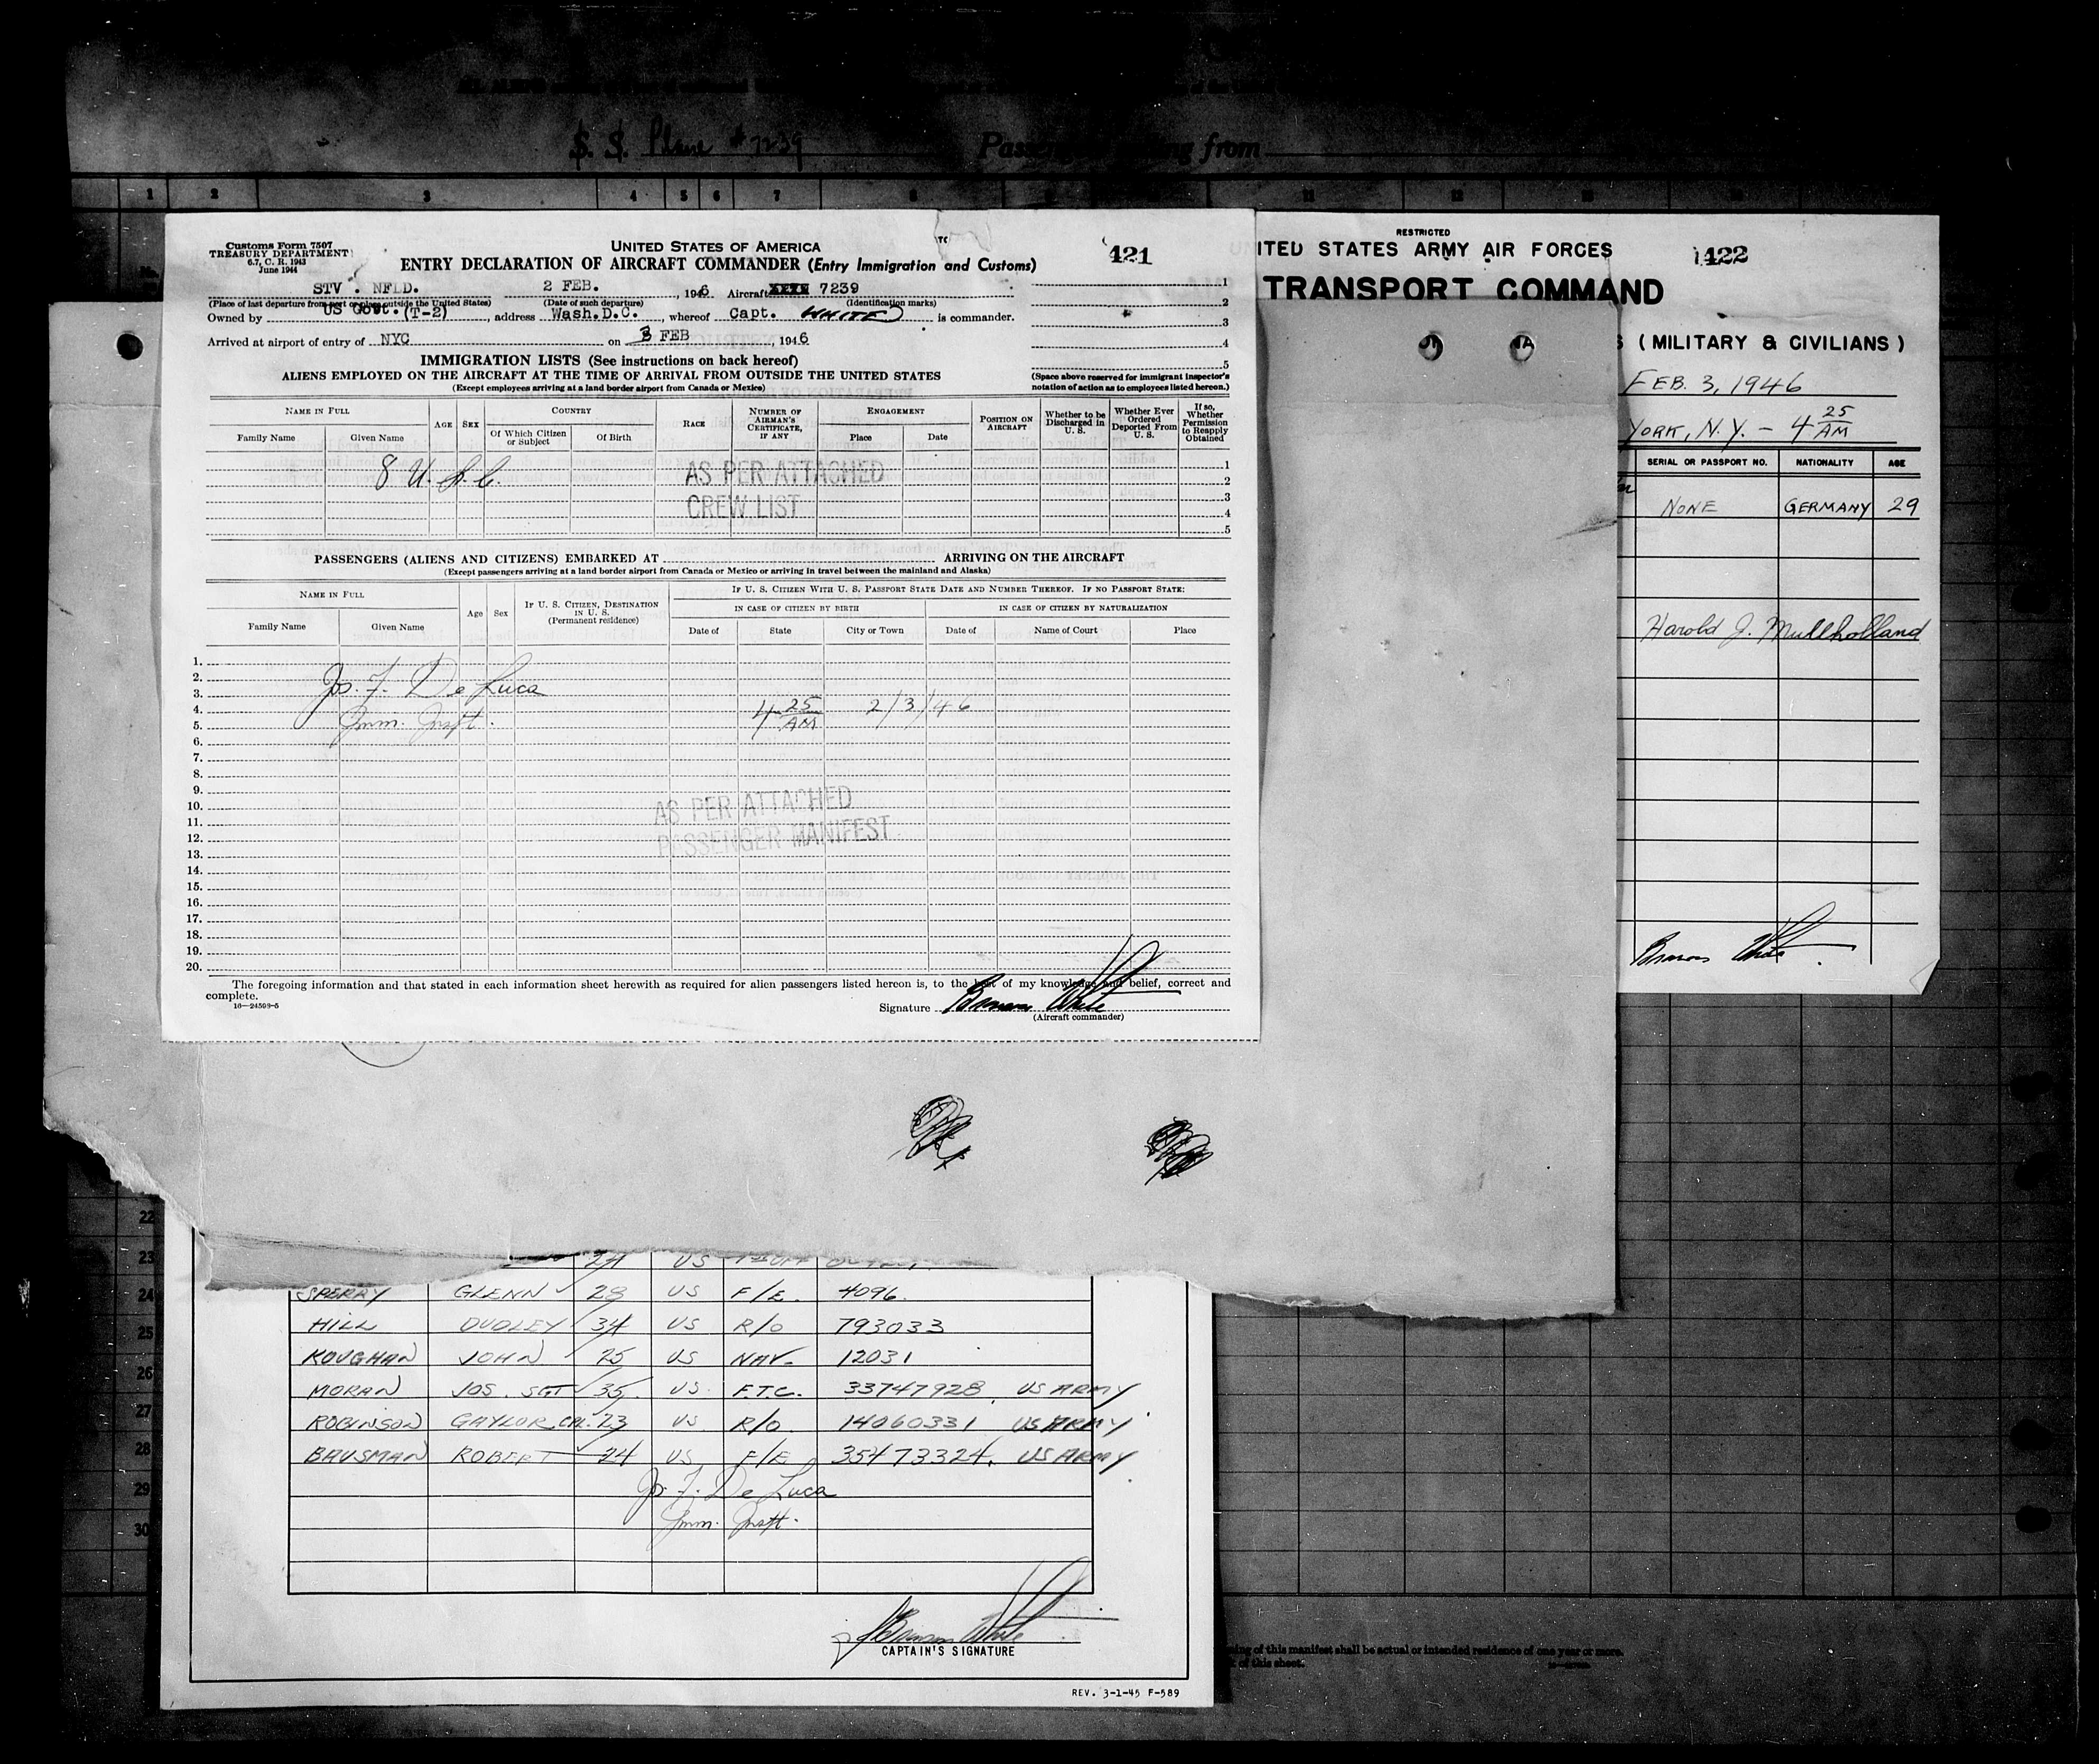 S. S. Plane # 7239 Passengers sailing from
1 2 3 4 5 6 7 8 11 12
Customs Form 7507
TREASURY DEPARTMENT
6.7, C. R. 1943
June 1944
UNITED STATES OF AMERICA
421
ENTRY DECLARATION OF AIRCRAFT COMMANDER (Entry Immigration and Customs)
STV . NFLD. 2 FEB. , 1946 Aircraft 7239
(Place of last departure from port or place outside the United States) (Date of such departure) (Identification marks)
Owned by US Govt. (T-2) , address Wash.D.C. , whereof Capt. WHITE is commander.
Arrived at airport of entry of NYC on 3 FEB , 1946
1
2
3
4
5
IMMIGRATION LISTS (See instructions on back hereof)
ALIENS EMPLOYED ON THE AIRCRAFT AT THE TIME OF ARRIVAL FROM OUTSIDE THE UNITED STATES
(Except employees arriving at a land border airport from Canada or Mexico)
(Space above reserved for immigrant inspector's notation of action as to employees listed hereon.)
NAME IN FULL AGE SEX COUNTRY RACE NUMBER OF AIRMAN'S CERTIFICATE, IF ANY ENGAGEMENT POSITION ON AIRCRAFT Whether to be Discharged in U. S. Whether Ever Ordered Deported From U. S. If so, Whether Permission to Reapply Obtained
Family Name Given Name Of Which Citizen or Subject Of Birth Place Date
8 U. S. C.
AS PER ATTACHED
CREW LIST
1
2
3
4
5
PASSENGERS (ALIENS AND CITIZENS) EMBARKED AT ARRIVING ON THE AIRCRAFT
(Except passengers arriving at a land border airport from Canada or Mexico or arriving in travel between the mainland and Alaska)
NAME IN FULL Age Sex IF U. S. CITIZEN, DESTINATION IN U. S. (Permanent residence) IF U. S. CITIZEN WITH U. S. PASSPORT STATE DATE AND NUMBER THEREOF. IF NO PASSPORT STATE:
IN CASE OF CITIZEN BY BIRTH IN CASE OF CITIZEN BY NATURALIZATION
Family Name Given Name Date of State City or Town Date of Name of Court Place
1.
2.
Jos. F. De Luca
3.
4. 4 25/AM 2/3/46
Imm. Inspt.
5.
6.
7.
8.
9.
10. AS PER ATTACHED
11.
12. PASSENGER MANIFEST
13.
14.
15.
16.
17.
18.
19.
20.
The foregoing information and that stated in each information sheet herewith as required for alien passengers listed hereon is, to the best of my knowledge and belief, correct and
complete.
16—24598-5
Signature
(Aircraft commander)
RESTRICTED
ITED STATES ARMY AIR FORCES
422
TRANSPORT COMMAND
S (MILITARY & CIVILIANS)
FEB. 3, 1946
YORK, N.Y. - 4 25/AM
SERIAL OR PASSPORT NO. NATIONALITY AGE
NONE GERMANY 29
Harold J. Mullholland
22
23
24
25
26
27
28
29
30
24 US
SPERRY GLENN 28 US F/E. 4096.
HILL DUDLEY 34 US R/O 793033
KOUGHAN JOHN 25 US NAV. 12031
MORAN JOS. SGT 35. US. F.T.C. 33747928 US ARMY
ROBINSON GAYLOR CPL. 23 US R/O 14060331 US ARMY
BAUSMAN ROBERT 24 US F/E 35473324. US ARMY
Jos. F. De Luca
Imm. Inspt.
CAPTAIN'S SIGNATURE
REV. 3-1-45 F-589
of this manifest shall be actual or intended residence of one year or more.
of this sheet.